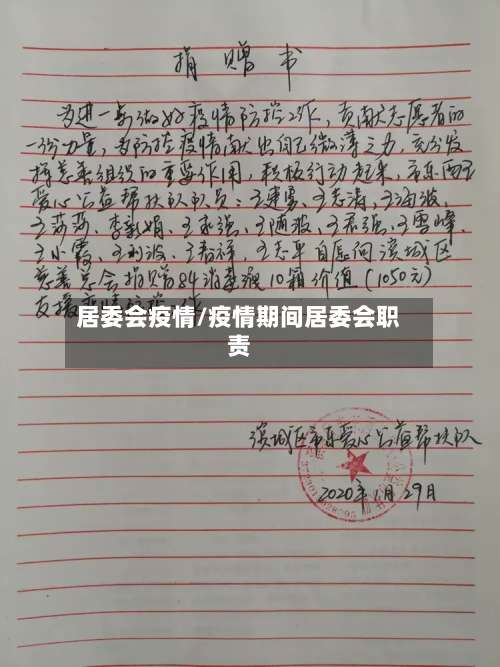 捐赠书
为进一步做好疫情防控工作，贡献志愿者的
一份力量，为防控疫情献出自己微薄之力，充分发
挥慈善组织的重要作用，积极行动起来，市东西王
爱心公益帮扶队队员：王建勇、王志涛、王海波、
王莎莎、李新娟、王永强、王随波、王君强、王雪峰、
王小霞、王利波、王春祥、王志平自愿向滨城区
慈善总会捐赠84消毒液10箱价值（1050元）
支援疫情防控工作
居委会疫情/疫情期间居委会职
责
滨城区市东爱心公益帮扶队
2020年1月29日